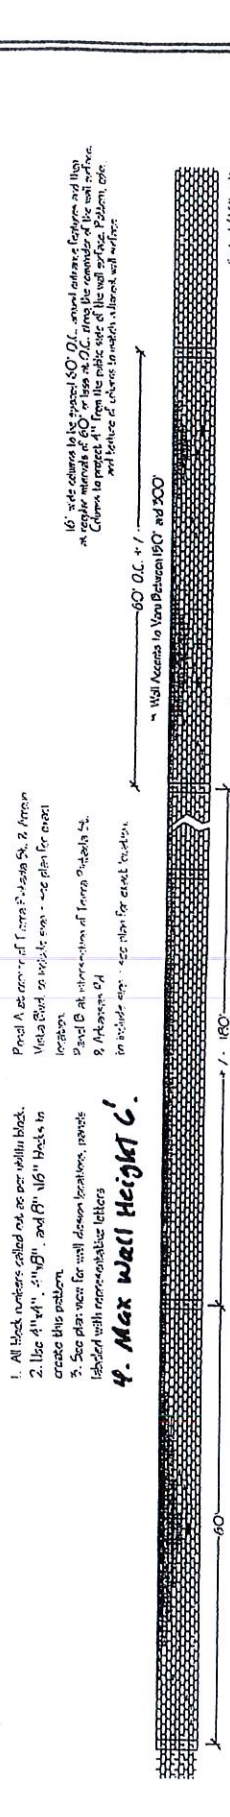 1. All block numbers called out as per utility block.
2. Use 4"x4", 4"x8", and 8" x16" blocks to
create this pattern
3. See plan view for wall design locations, panels
labeled with representative letters
4. Max Wall Height 6'.
Panel A at corner of Tierra Pintada St. & Arroyo
Vista Blvd. to include sign - see plan for exact
location.
Panel B at intersection of Tierra Pintada St.
& Arkansas Rd
to include sign - see plan for exact location.
16" wide columns to be spaced 60' O.C. around entrance features and then
at regular intervals of 60' or less at O.C. along the remainder of the wall surface.
Columns to project 4" from the public side of the wall surface. Pattern, color,
and texture of columns to match adjacent wall surface
60' O.C. + / -
Wall Accents to Vary Between 150' and 300'
60'
+ / - 180'